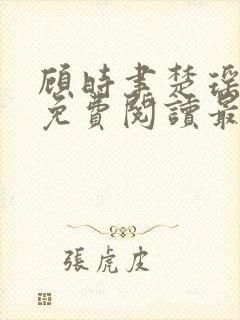 顧時書楚瑶
免費閱讀最
張虎皮